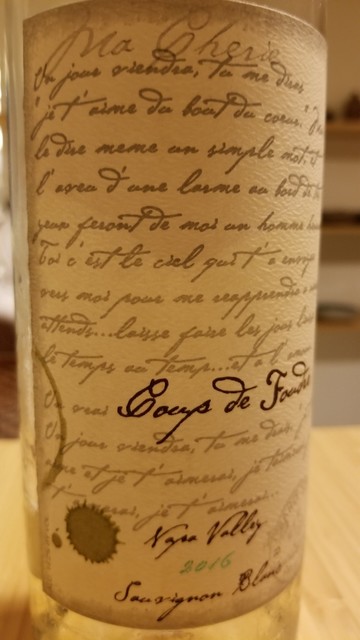 Ma Cherie
Un jour viendra, tu me diras
"je t'aime du bout du coeur."
le dire meme un simple mot,
l'aveu d'une larme au bord de
yeux feront de moi un homme
Toi c'est le ciel qui t'a envoyé
vers moi pour me reapprendre a
attends...laisse faire les jours
le temps au temps...et a l'amour
Un vrai Coup de Foudre
Un jour viendra, tu me diras,
aime et je t'aimerai, je
Napa Valley
2016
Sauvignon Blanc